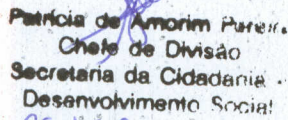 Patrícia de Amorim
Chefe de Divisão
Secretaria da Cidadania
Desenvolvimento Social